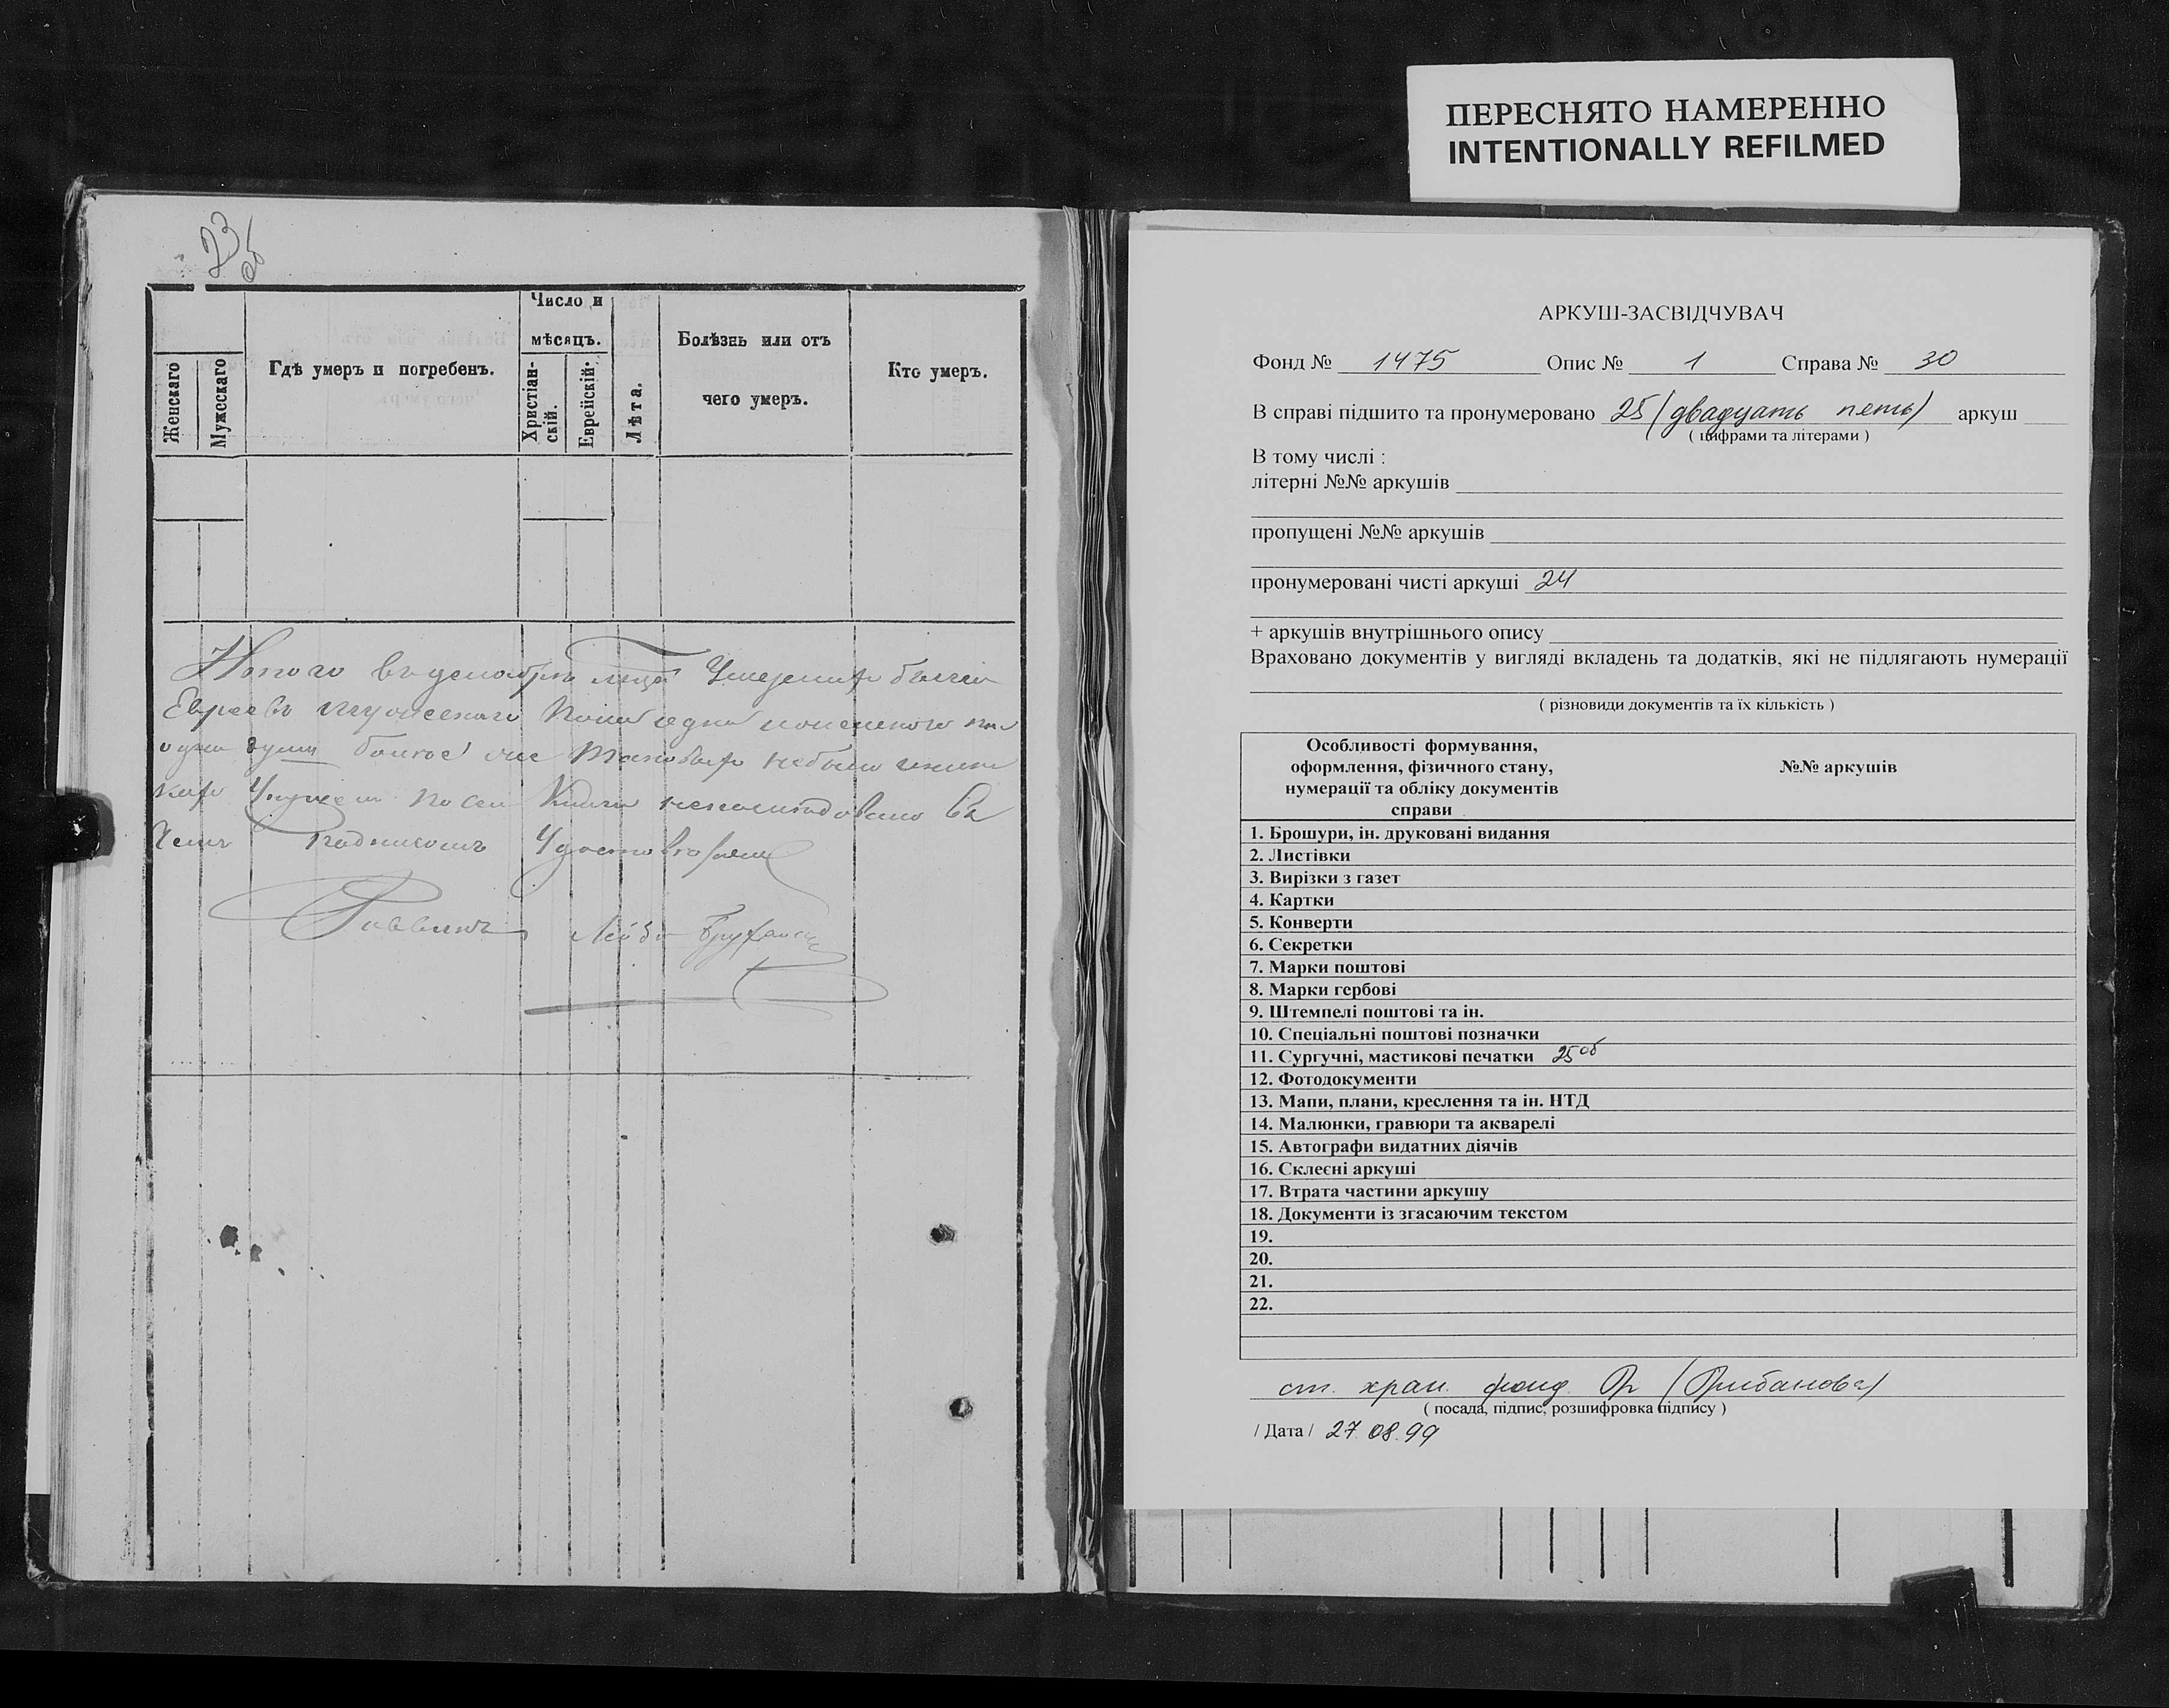 ПЕРЕСНЯТО НАМЕРЕННО
INTENTIONALLY REFILMED
23 об
Женскаго
Мужескаго
Гдѣ умеръ и погребенъ.
Число и
мѣсяцъ.
Христіан-
скій.
Еврейскій.
Лѣта.
Болѣзнь или отъ
чего умеръ.
Кто умеръ.
Итого въ декабрѣ
Евреевъ мужескаго
одна душа более
Книги
чемъ подписомъ Удостовѣряемъ
Раввинъ Лейба
АРКУШ-ЗАСВІДЧУВАЧ
Фонд № 1475 Опис № 1 Справа № 30
В справі підшито та пронумеровано 25 (двадцать пять) аркуш
( цифрами та літерами )
В тому числі :
літерні №№ аркушів
пропущені №№ аркушів
пронумеровані чисті аркуші 24
+ аркушів внутрішнього опису
Враховано документів у вигляді вкладень та додатків, які не підлягають нумерації
( різновиди документів та їх кількість )
Особливості формування,
оформлення, фізичного стану,
нумерації та обліку документів
справи
№№ аркушів
1. Брошури, ін. друковані видання
2. Листівки
3. Вирізки з газет
4. Картки
5. Конверти
6. Секретки
7. Марки поштові
8. Марки гербові
9. Штемпелі поштові та ін.
10. Спеціальні поштові позначки
11. Сургучні, мастикові печатки 25об
12. Фотодокументи
13. Мапи, плани, креслення та ін. НТД
14. Малюнки, гравюри та акварелі
15. Автографи видатних діячів
16. Склеєні аркуші
17. Втрата частини аркушу
18. Документи із згасаючим текстом
19.
20.
21.
22.
ст. хран. фонд.
( посада, підпис, розшифровка підпису )
/ Дата / 27.08.99